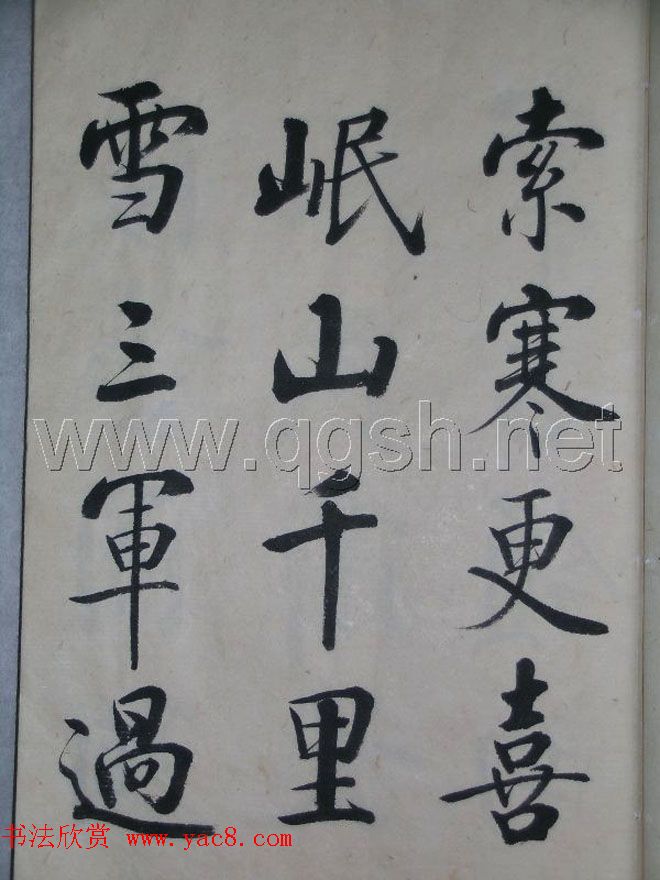 索寒更喜
岷山千里
雪三軍過
www.qgsh.net
书法欣赏 www.yac8.com